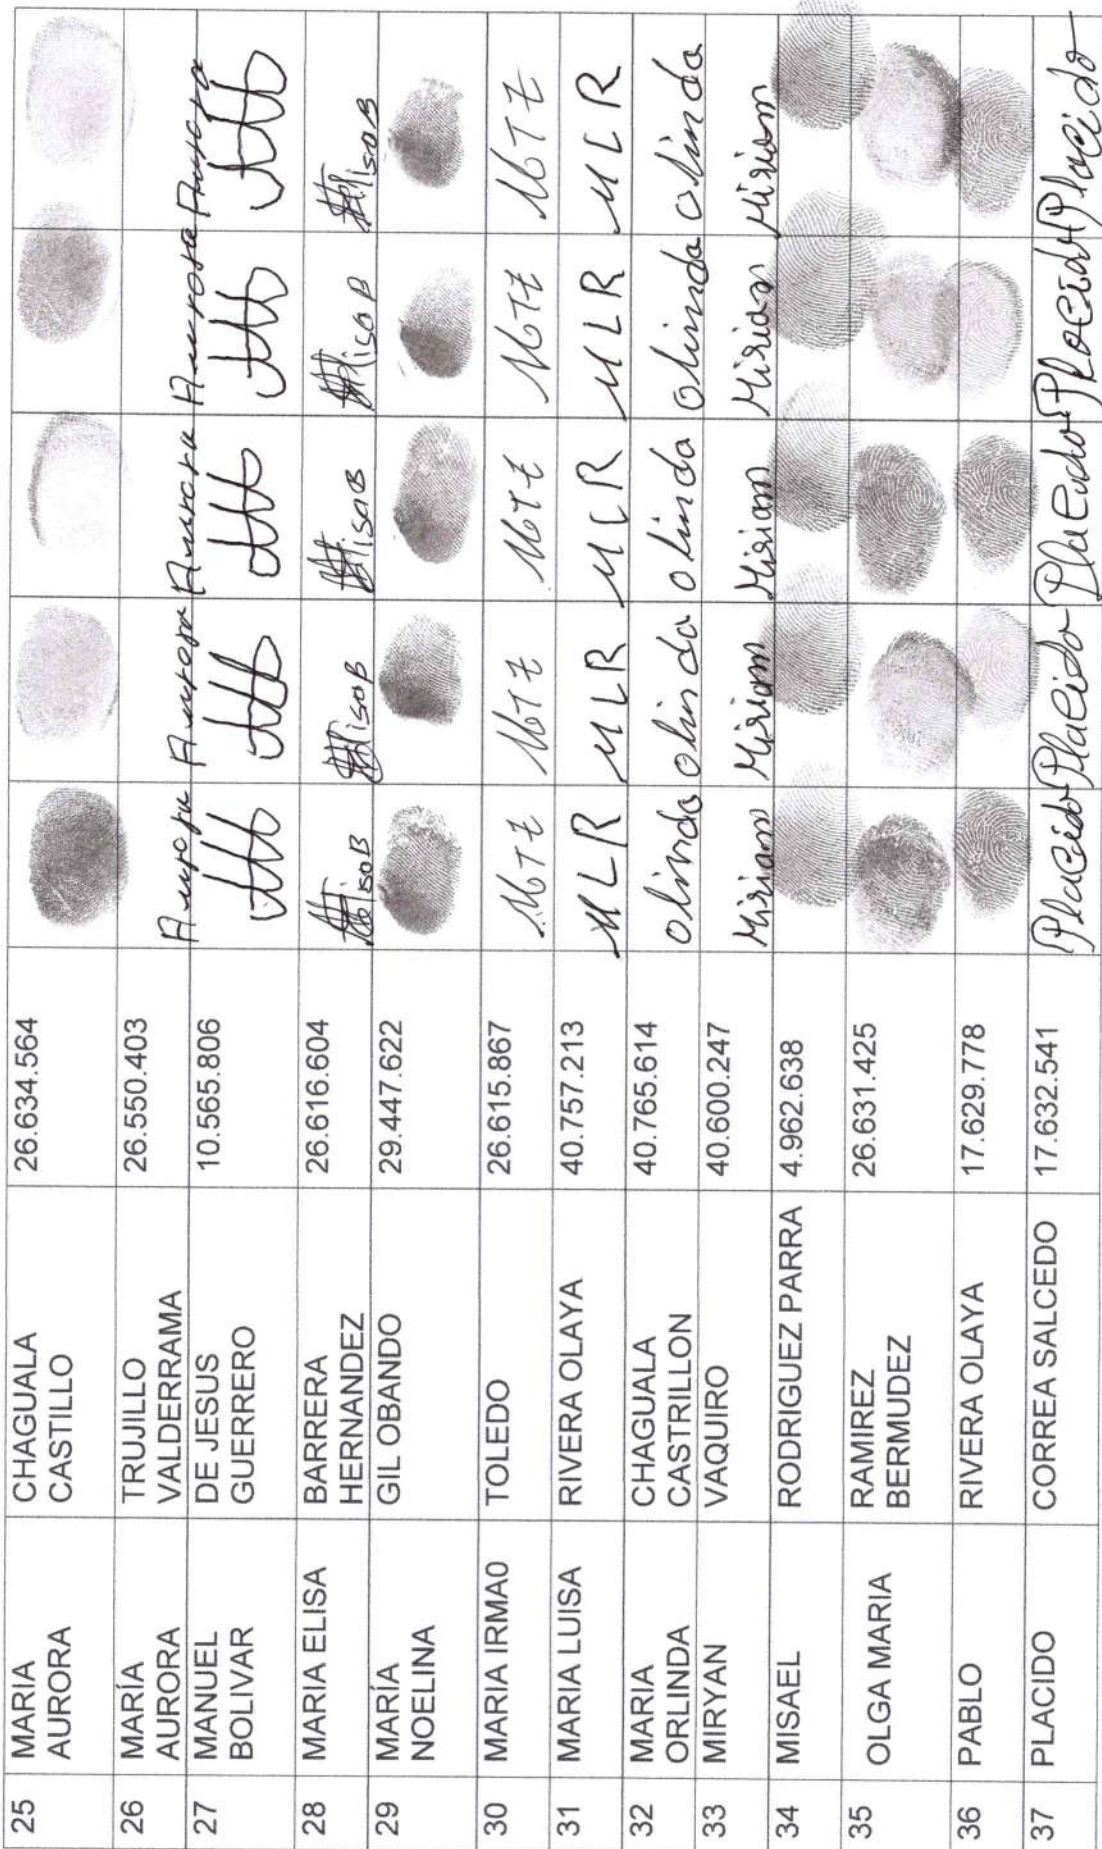 25 MARIA AURORA CHAGUALA CASTILLO 26.634.564
26 MARÍA AURORA TRUJILLO VALDERRAMA 26.550.403 Aurora Aurora Aurora Aurora Aurora
27 MANUEL BOLIVAR DE JESUS GUERRERO 10.565.806
28 MARIA ELISA BARRERA HERNANDEZ 26.616.604
29 MARÍA NOELINA GIL OBANDO 29.447.622
30 MARIA IRMA0 TOLEDO 26.615.867
31 MARIA LUISA RIVERA OLAYA 40.757.213 MLR MLR MLR MLR MLR
32 MARIA ORLINDA CHAGUALA CASTRILLON 40.765.614 olinda olinda olinda olinda olinda
33 MIRYAN VAQUIRO 40.600.247 Miriam Miriam Miriam Miriam Miriam
34 MISAEL RODRIGUEZ PARRA 4.962.638
35 OLGA MARIA RAMIREZ BERMUDEZ 26.631.425
36 PABLO RIVERA OLAYA 17.629.778
37 PLACIDO CORREA SALCEDO 17.632.541 Placido Placido Placido Placido Placido